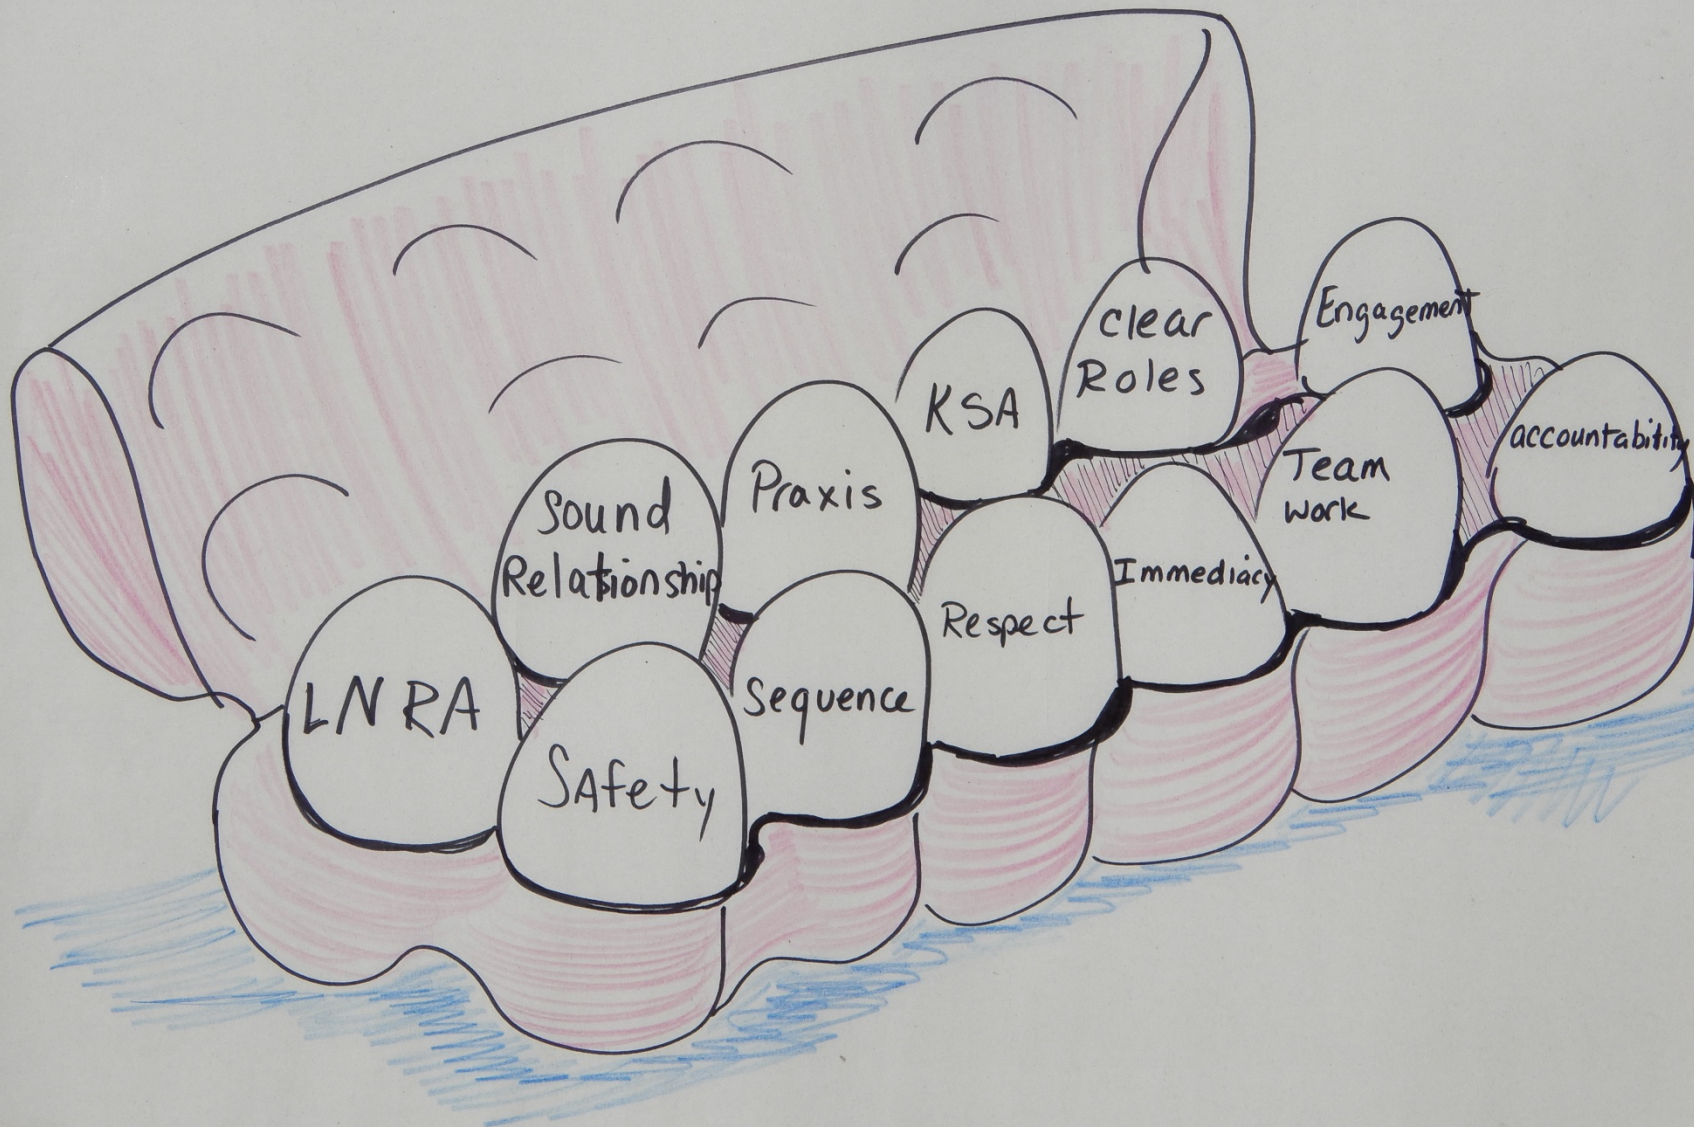 LNRA
Sound
Relationship
Praxis
KSA
Clear
Roles
Engagement
Safety
Sequence
Respect
Immediacy
Team
work
accountability